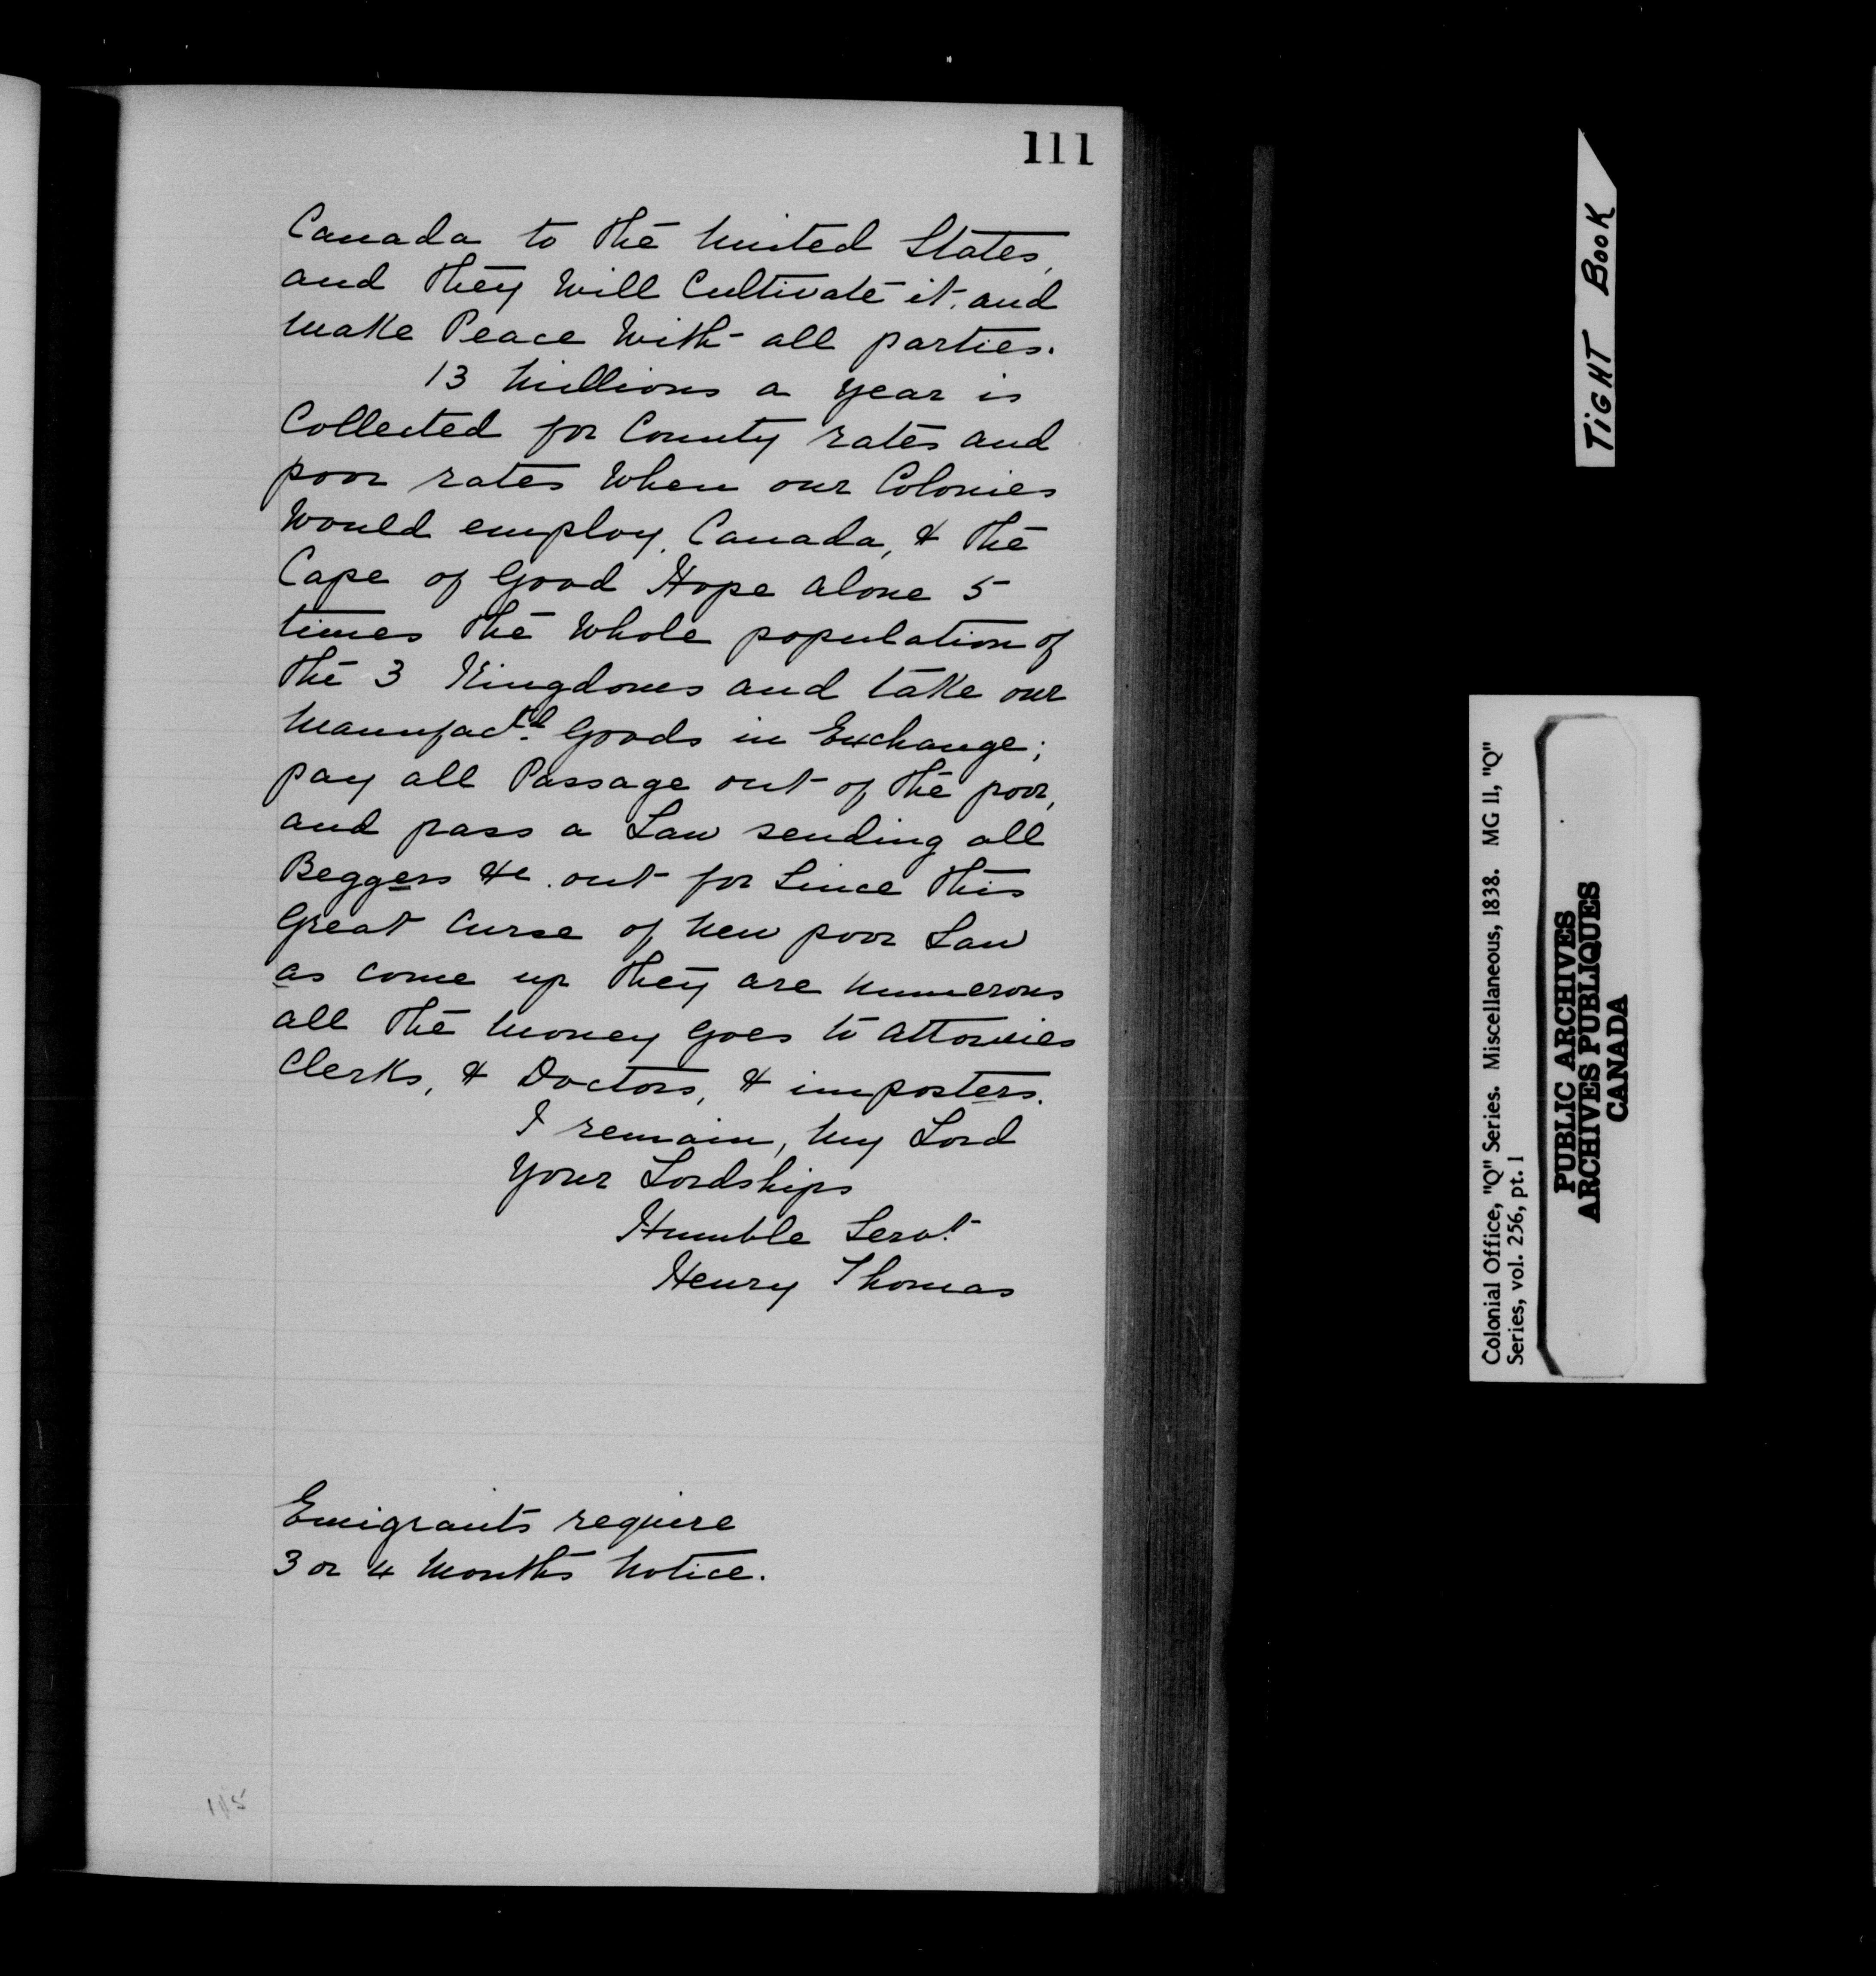 111
Canada to the United States,
and they Will Cultivate it, and
make Peace With all parties.
13 Millions a year is
Collected for County rates and
poor rates When our Colonies
Would employ, Canada, & the
Cape of Good Hope alone 5
times the Whole population of
the 3 Kingdoms and take our
Manufactd. Goods in Exchange;
pay all Passage out of the poor,
and pass a Law sending all
Beggers &c. out for Since this
Great Curse of New poor Law
as come up they are numerous
all the money goes to Attornies
Clerks, & Doctors, & imposters.
I remain, My Lord
Your Lordships
Humble Servt.
Henry Thomas
Emigrants require
3 or 4 Months Notice.
115
TiGHT BOOK
Colonial Office, "Q" Series. Miscellaneous, 1838. MG 11, "Q"
Series, vol. 256, pt. 1
PUBLIC ARCHIVES
ARCHIVES PUBLIQUES
CANADA